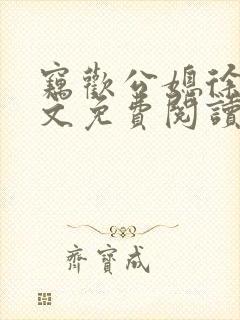 竊歡公媳徐
文免費閱讀
齊寶成